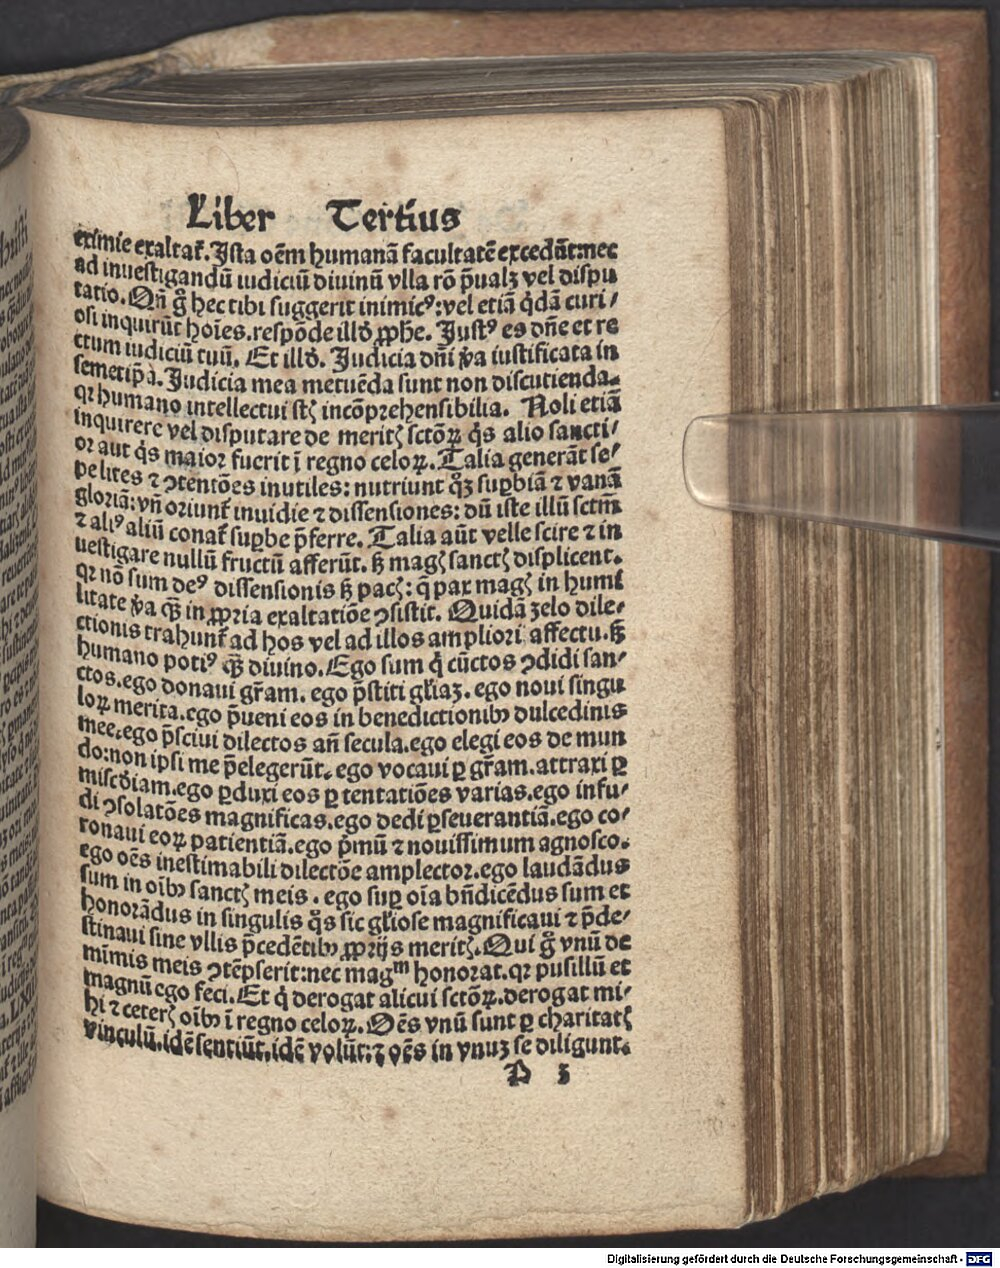 Liber Tertius
eximie exaltat᷑. Ista oēm humanā facultatē excedūt:nec
ad inuestigandū iudiciū diuinū vlla rō p̄ualꝫ vel dispu
tatio. Qn̄ gͦ hec tibi suggerit inimicꝰ: vel etiā qͥdā curi/
osi inquirūt hoīes. respōde illḋ ꝓph̄e. Iustꝰ es dn̄e et re
ctum iudiciū tuū. Et illḋ. Iudicia dn̄i v̄a iustificata in
semetip̄a. Iudicia mea metuēda sunt non discutienda.
qꝛ humano intellectui st̄ꝫ incōprehensibilia. Noli etiā
inquirere vel disputare de meritꝭ sctōꝝ qͥs alio sancti/
or aut qͥs maior fuerit ī regno celoꝝ. Talia generāt se/
pe lites ⁊ ꝯtentōes inutiles: nutriunt qͦꝫ suꝑbiā ⁊ vanā
gloriā: vn̄ oriunt᷑ inuidie ⁊ dissensiones: dū iste illū sctm̄
⁊ aliꝰ aliū conat᷑ suꝑbe p̄ferre. Talia aūt velle scire ⁊ in
uestigare nullū fructū afferūt. sꝫ magꝭ sanctꝭ displicent.
qꝛ nō sum deꝰ dissensionis sꝫ pacꝭ: q̄ pax magꝭ in humi
litate v̄a qꝫ̄ in ꝓpria exaltatiōe ꝯsistit. Quidā zelo dile/
ctionis trahunt᷑ ad hos vel ad illos ampliori affectu. sꝫ
humano potiꝰ qꝫ̄ diuino. Ego sum qͥ cūctos ꝯdidi san/
ctos. ego donaui gr̄am. ego p̄stiti gl̄iaꝫ. ego noui singu
loꝝ merita. ego p̄ueni eos in benedictionibꝰ dulcedinis
mee. ego p̄sciui dilectos an̄ secula. ego elegi eos de mun
do: non ipsi me p̄elegerūt. ego vocaui ꝑ gr̄am. attraxi ꝑ
misc̄diam. ego ꝑduxi eos ꝑ tentatiōes varias. ego infu/
di ꝯsolatōes magnificas. ego dedi ꝑseuerantiā. ego co/
ronaui eoꝝ patientiā. ego pͥmū ⁊ nouissimum agnosco.
ego oēs inestimabili dilectōe amplector. ego laudādus
sum in oībꝰ sanctꝭ meis. ego suꝑ oīa bn̄dicēdus sum et
honorādus in singulis qͦs sic gl̄iose magnificaui ⁊ p̄de/
stinaui sine vllis p̄cedētibꝰ ꝓprijs meritꝭ. Qui gͦ vnū de
mīmis meis ꝯtēpserit: nec magᵐ honorat. qꝛ pusillū et
magnū ego feci. Et qͥ derogat alicui sctōꝝ. derogat mi/
hi ⁊ ceterꝭ oībꝰ ī regno celoꝝ. Oēs vnū sunt ꝑ charitatꝭ
vinculū. idē sentiūt. idē volūt: ⁊ oēs in vnuꝫ se diligunt.